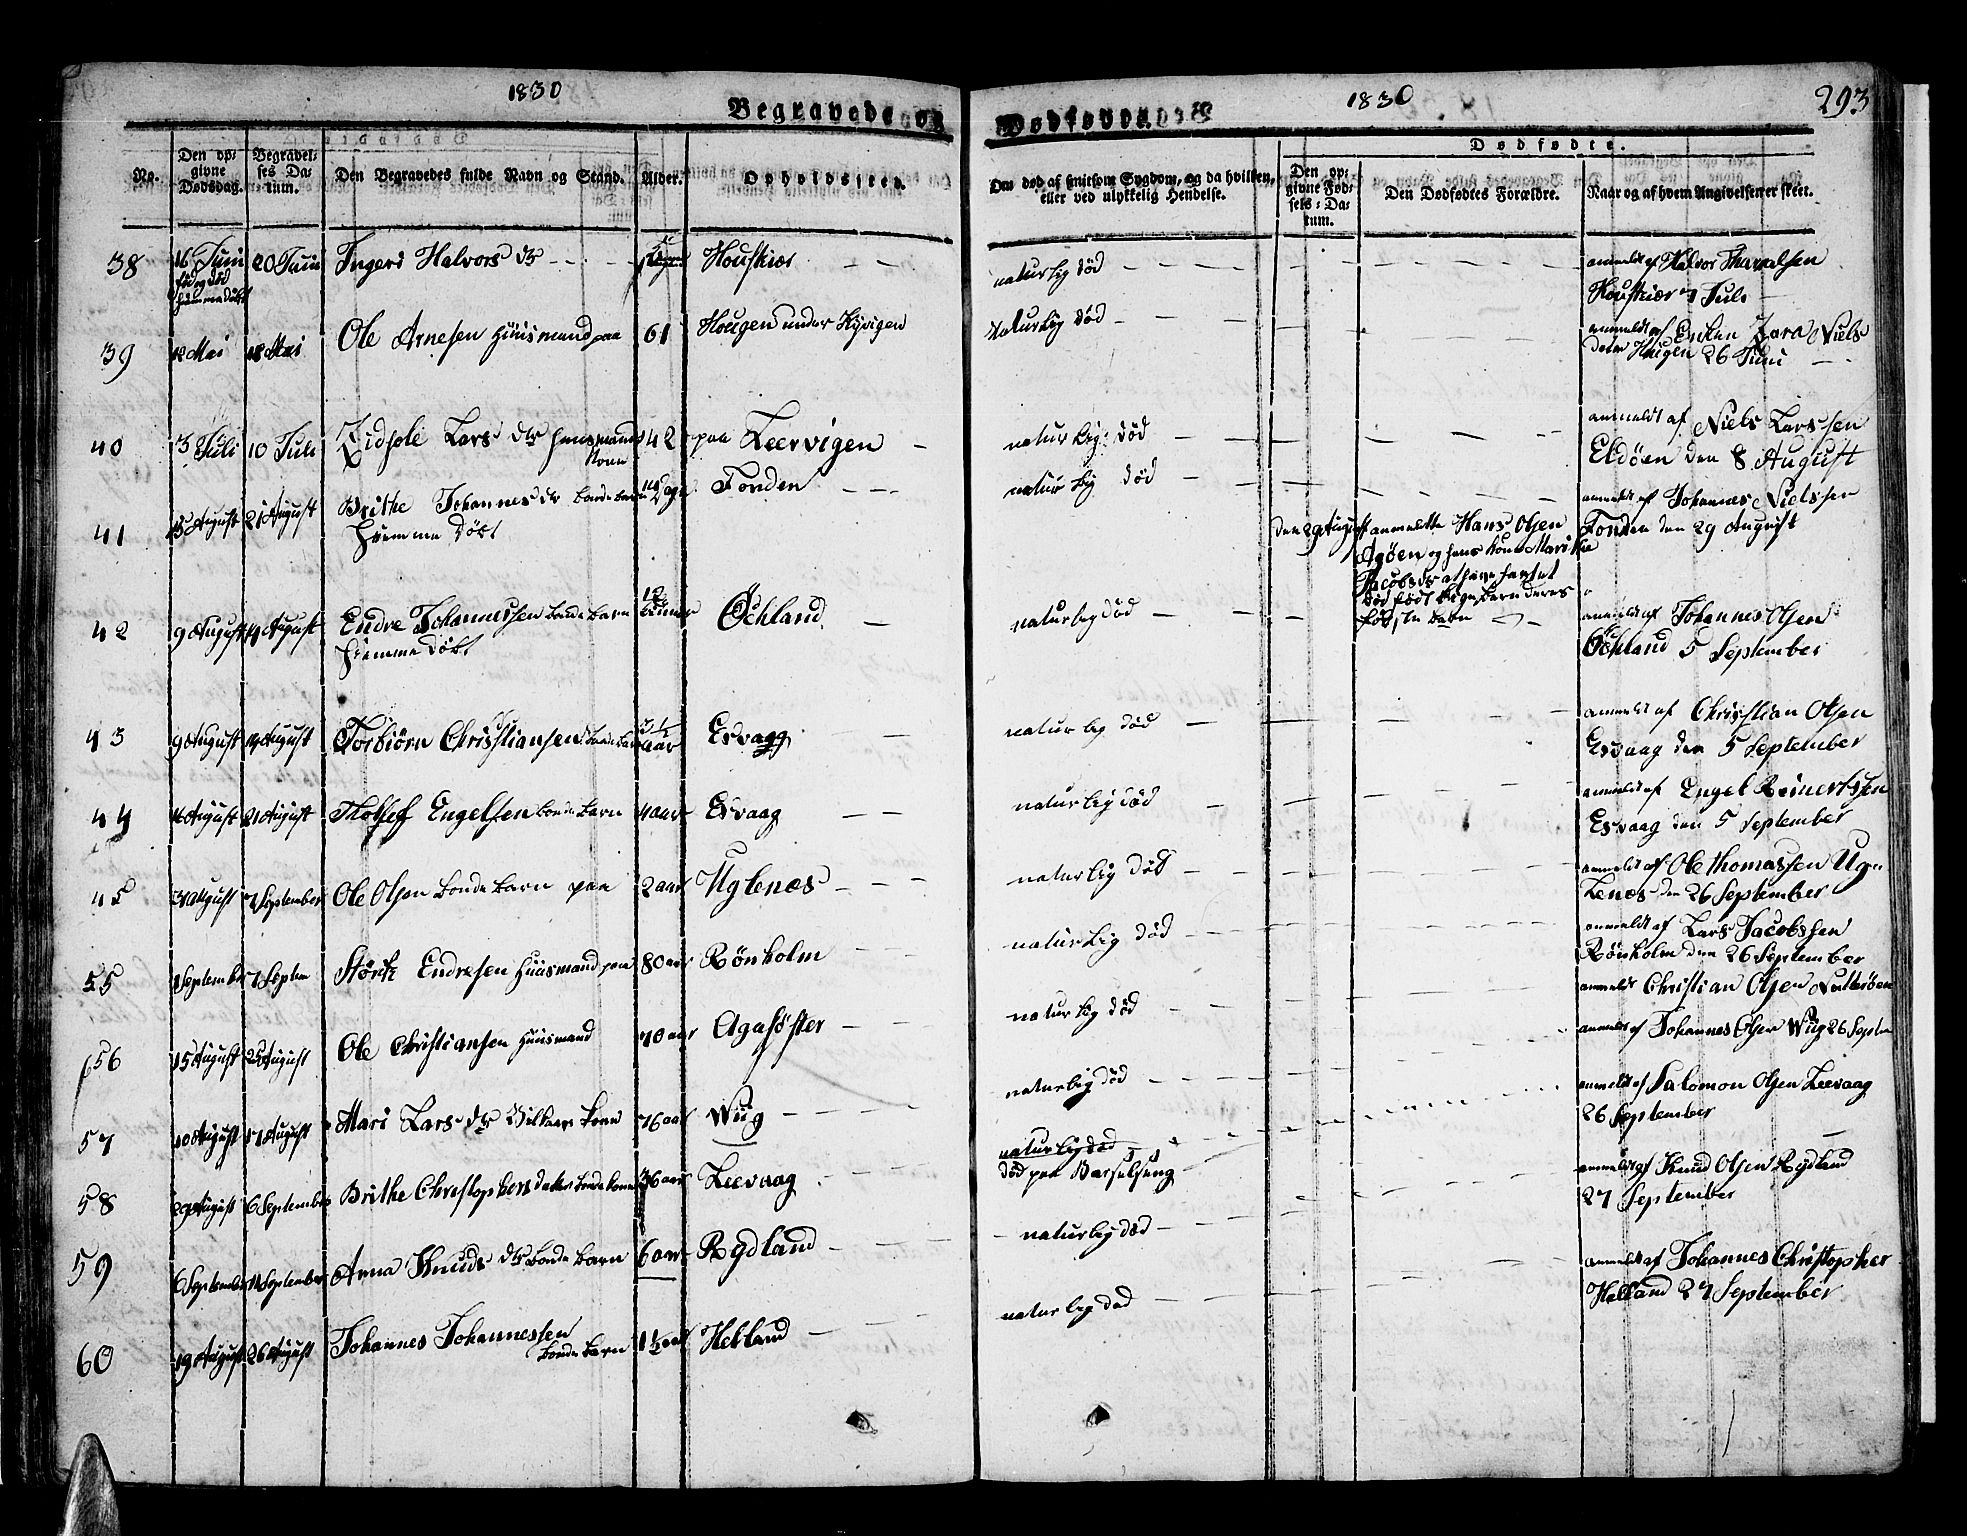 1830
Begravede og
No.
Den opgivne Dødsdag.
Begravelses Datum.
Den Begravedes fulde Navn og Stand.
Alder.
Opholdssted.
38 16 Juni 20 Juni Ingeri Halvors dr Houskiær
fød og død
hiemmedøbt
39 12 Mai 18 Mai Ole Arnesen Huusmand paa 61 Hougen under Hyvigen
40 3 Juli 10 Juli Lars dtr huusmands 42 paa Leervigen
kone
41 15 August 21 August Brithe Johannes dr bonde barn Dage Tonden
hiemme døbt
42 9 August 19 August Endre Johannessen bonde barn 12 timer Öchland
hiemme døbt
43 9 August 19 August Torbiörn Christiansen bonde barn 3 1/2 aar Esvaag
44 16 August 21 August Engelsen bonde barn 4 aar Esvaag
45 31 August 7 September Ole Olsen bonde barn paa 2 aar Uglenæs
55 1 September 7 Septem Endresen Huusmand paa 80 aar Rönholm
56 15 August 25 August Ole Christiansen Huusmand 70 aar Agasöster
57 10 August 17 August Mari Lars dr Vilkaars kone 76 aar Wiig
58 29 August 6 September Brithe Christophers datter bonde kone 36 aar Leevaag
59 6 September 11 September Anna Knuds dtr bonde barn 6 aar Rydland
60 19 August 26 August Johannes Johannessen 1 1/2 aar Hebland
bonde barn
1830
293
Dødfødte.
Om død af smitsom Sygdom, og da hvilken, eller ved ulykkelig Hendelse.
Dødfødte.
Den opgivne Fødsels-Datum.
Den Dødfødtes Forældre.
Naar og af hvem Angivelsen er skeet.
naturlig död anmeldt af Halvor
Houskiær 7 Juli
naturlig död anmeldt af Enken Zara Niels
dater Hougen 26 Juni
naturlig död anmeldt af Niels Larssen
Eldöen den 8 August
naturlig död anmeldt af Johannes Nielssen
Tonden den 29 August
den 29 August anmeldte Hans Olsen
Agöen og hans kone Marithe
Jacobsdr at have
död födt barn deres
förste barn
naturlig död anmeldt af Johannes Olsen
Öchland 5 September
naturlig död anmeldt af Christian Olsen
Esvaag den 5 September
naturlig död anmeldt af Engel Reinertssen
Esvaag den 5 September
naturlig död anmeldt af Ole Thomassen Ug-
lenæs den 26 September
naturlig död anmeldt af Lars Jacobssen
Rönholm den 26 September
naturlig död anmeldt Christian Olsen
anmeldt af Johannes Olsen Wiig 26 Septem
naturlig död anmeldt af Salomon Olsen Leevaag
26 September
naturlig död
död paa Barselseng
anmeldt af Knud Olsen Rydland
27 September
naturlig död
anmeldt af Johannes Christopher
27 September
naturlig död